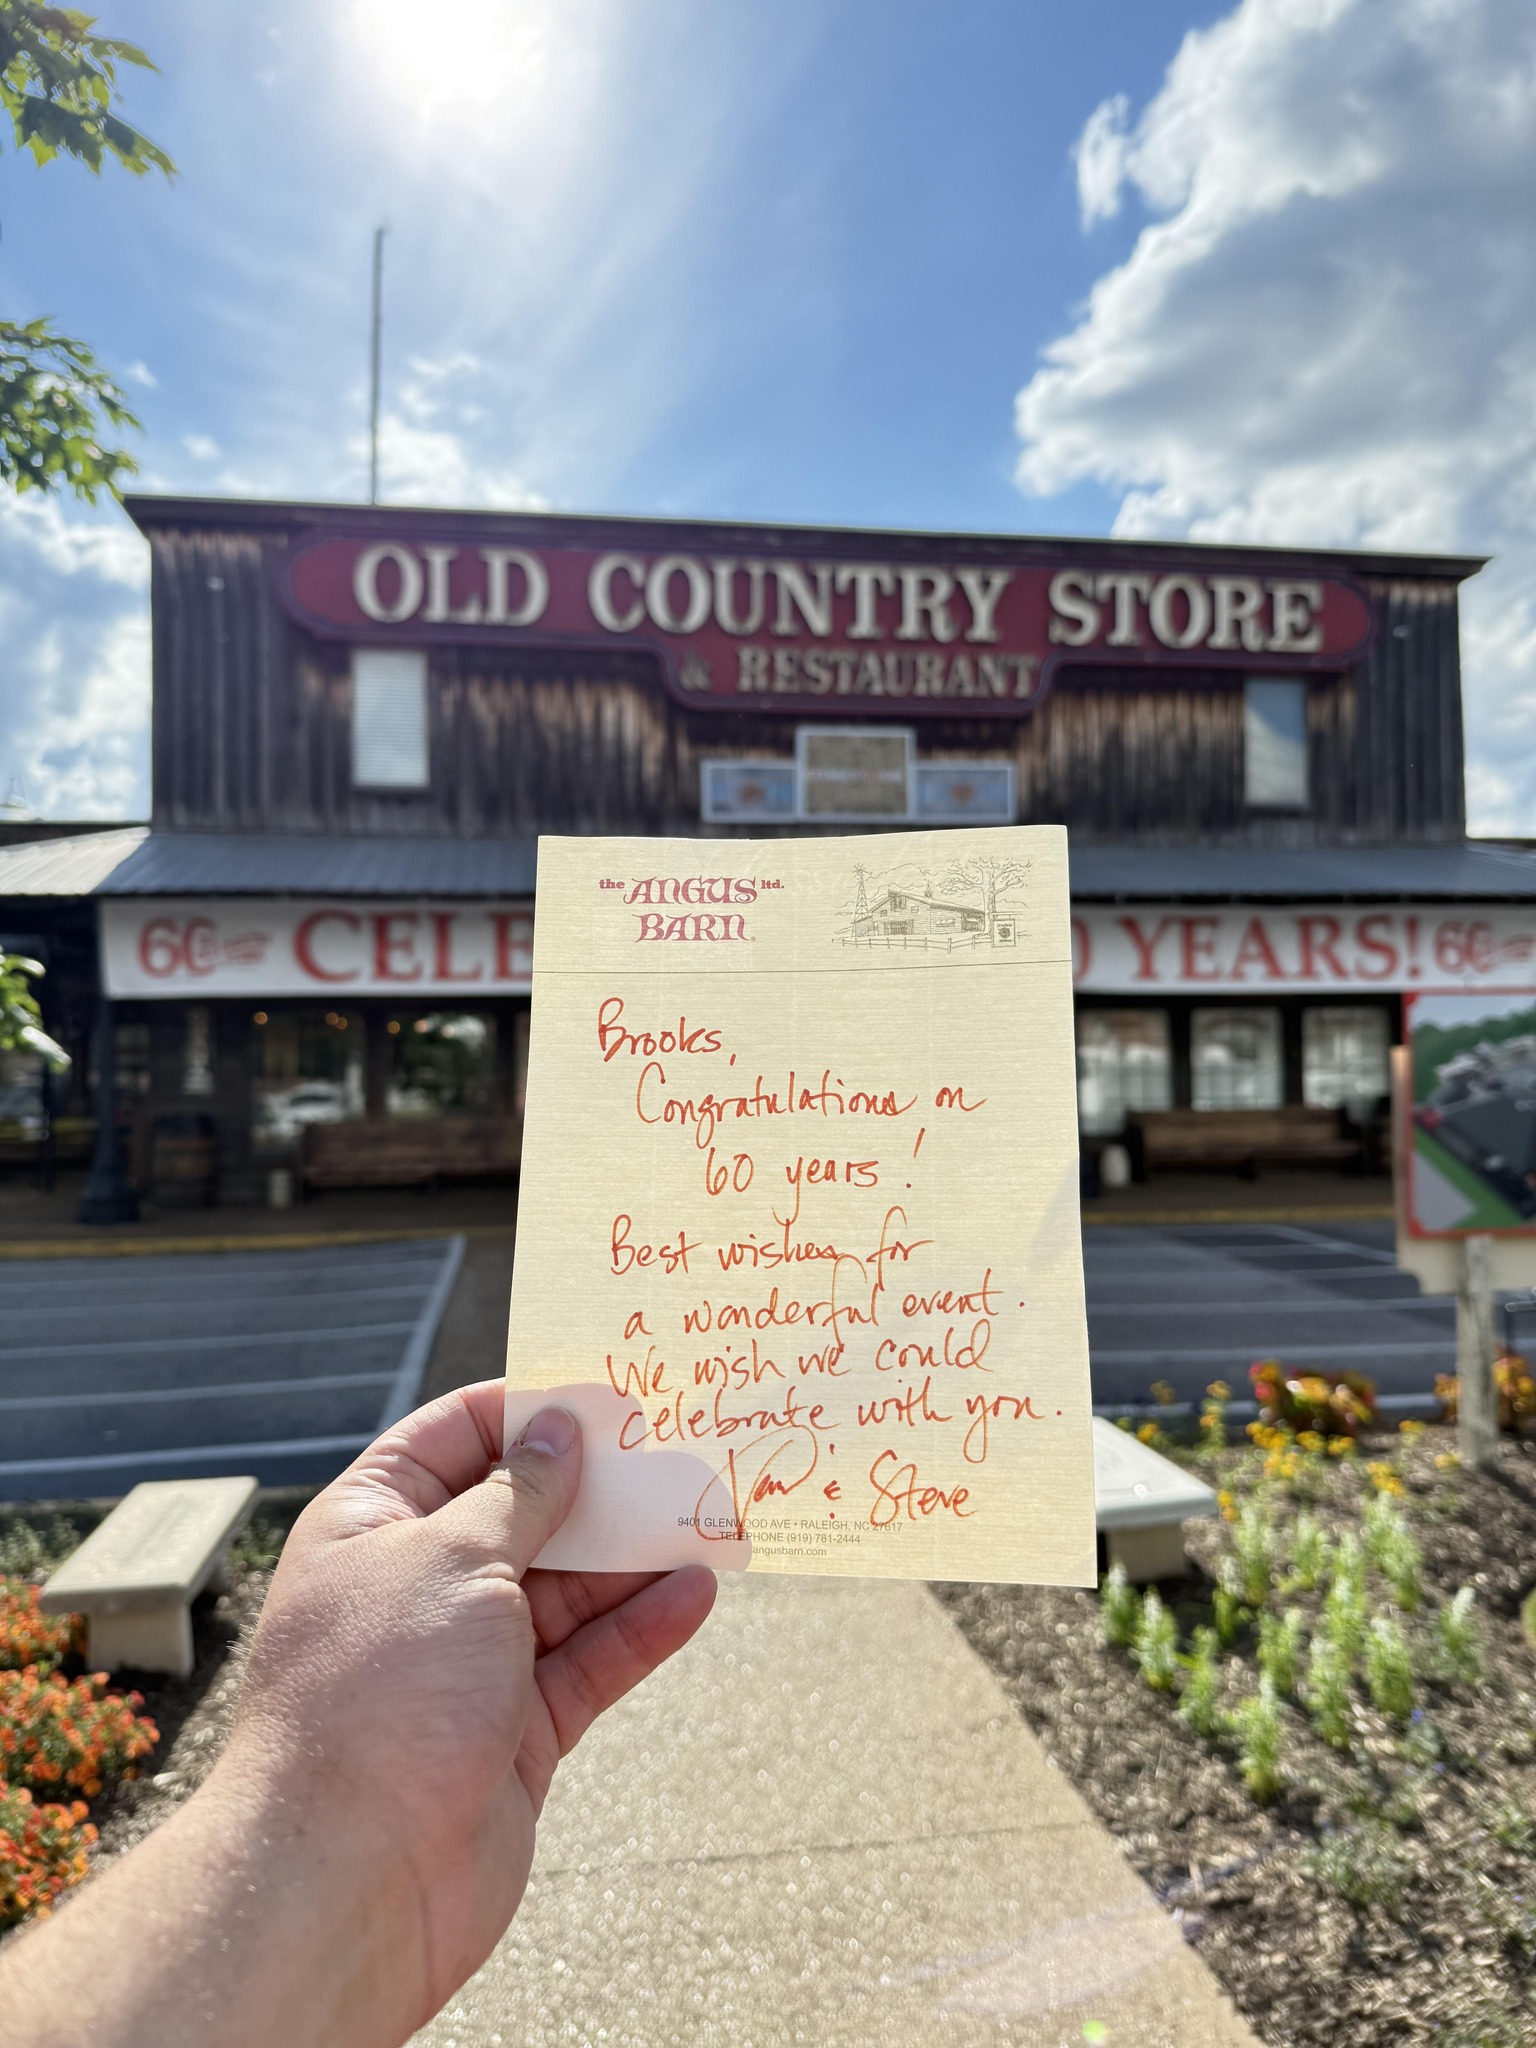 OLD COUNTRY STORE
& RESTAURANT
60 CELE 0 YEARS! 60
the ANGUS ltd.
BARN
Brooks,
Congratulations on
60 years!
Best wishes for
a wonderful event.
We wish we could
celebrate with you.
Van & Steve
9401 GLENWOOD AVE • RALEIGH, NC 27617
TELEPHONE (919) 781-2444
angusbarn.com